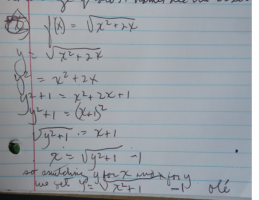 f(x) = √x²+2x
y = √x²+2x
y² = x²+2x
y²+1 = x²+2x+1
y²+1 = (x+1)²
√y²+1 = x+1
x = √y²+1 -1
so switching y for x and x for y
we get y = √x²+1 -1 olé